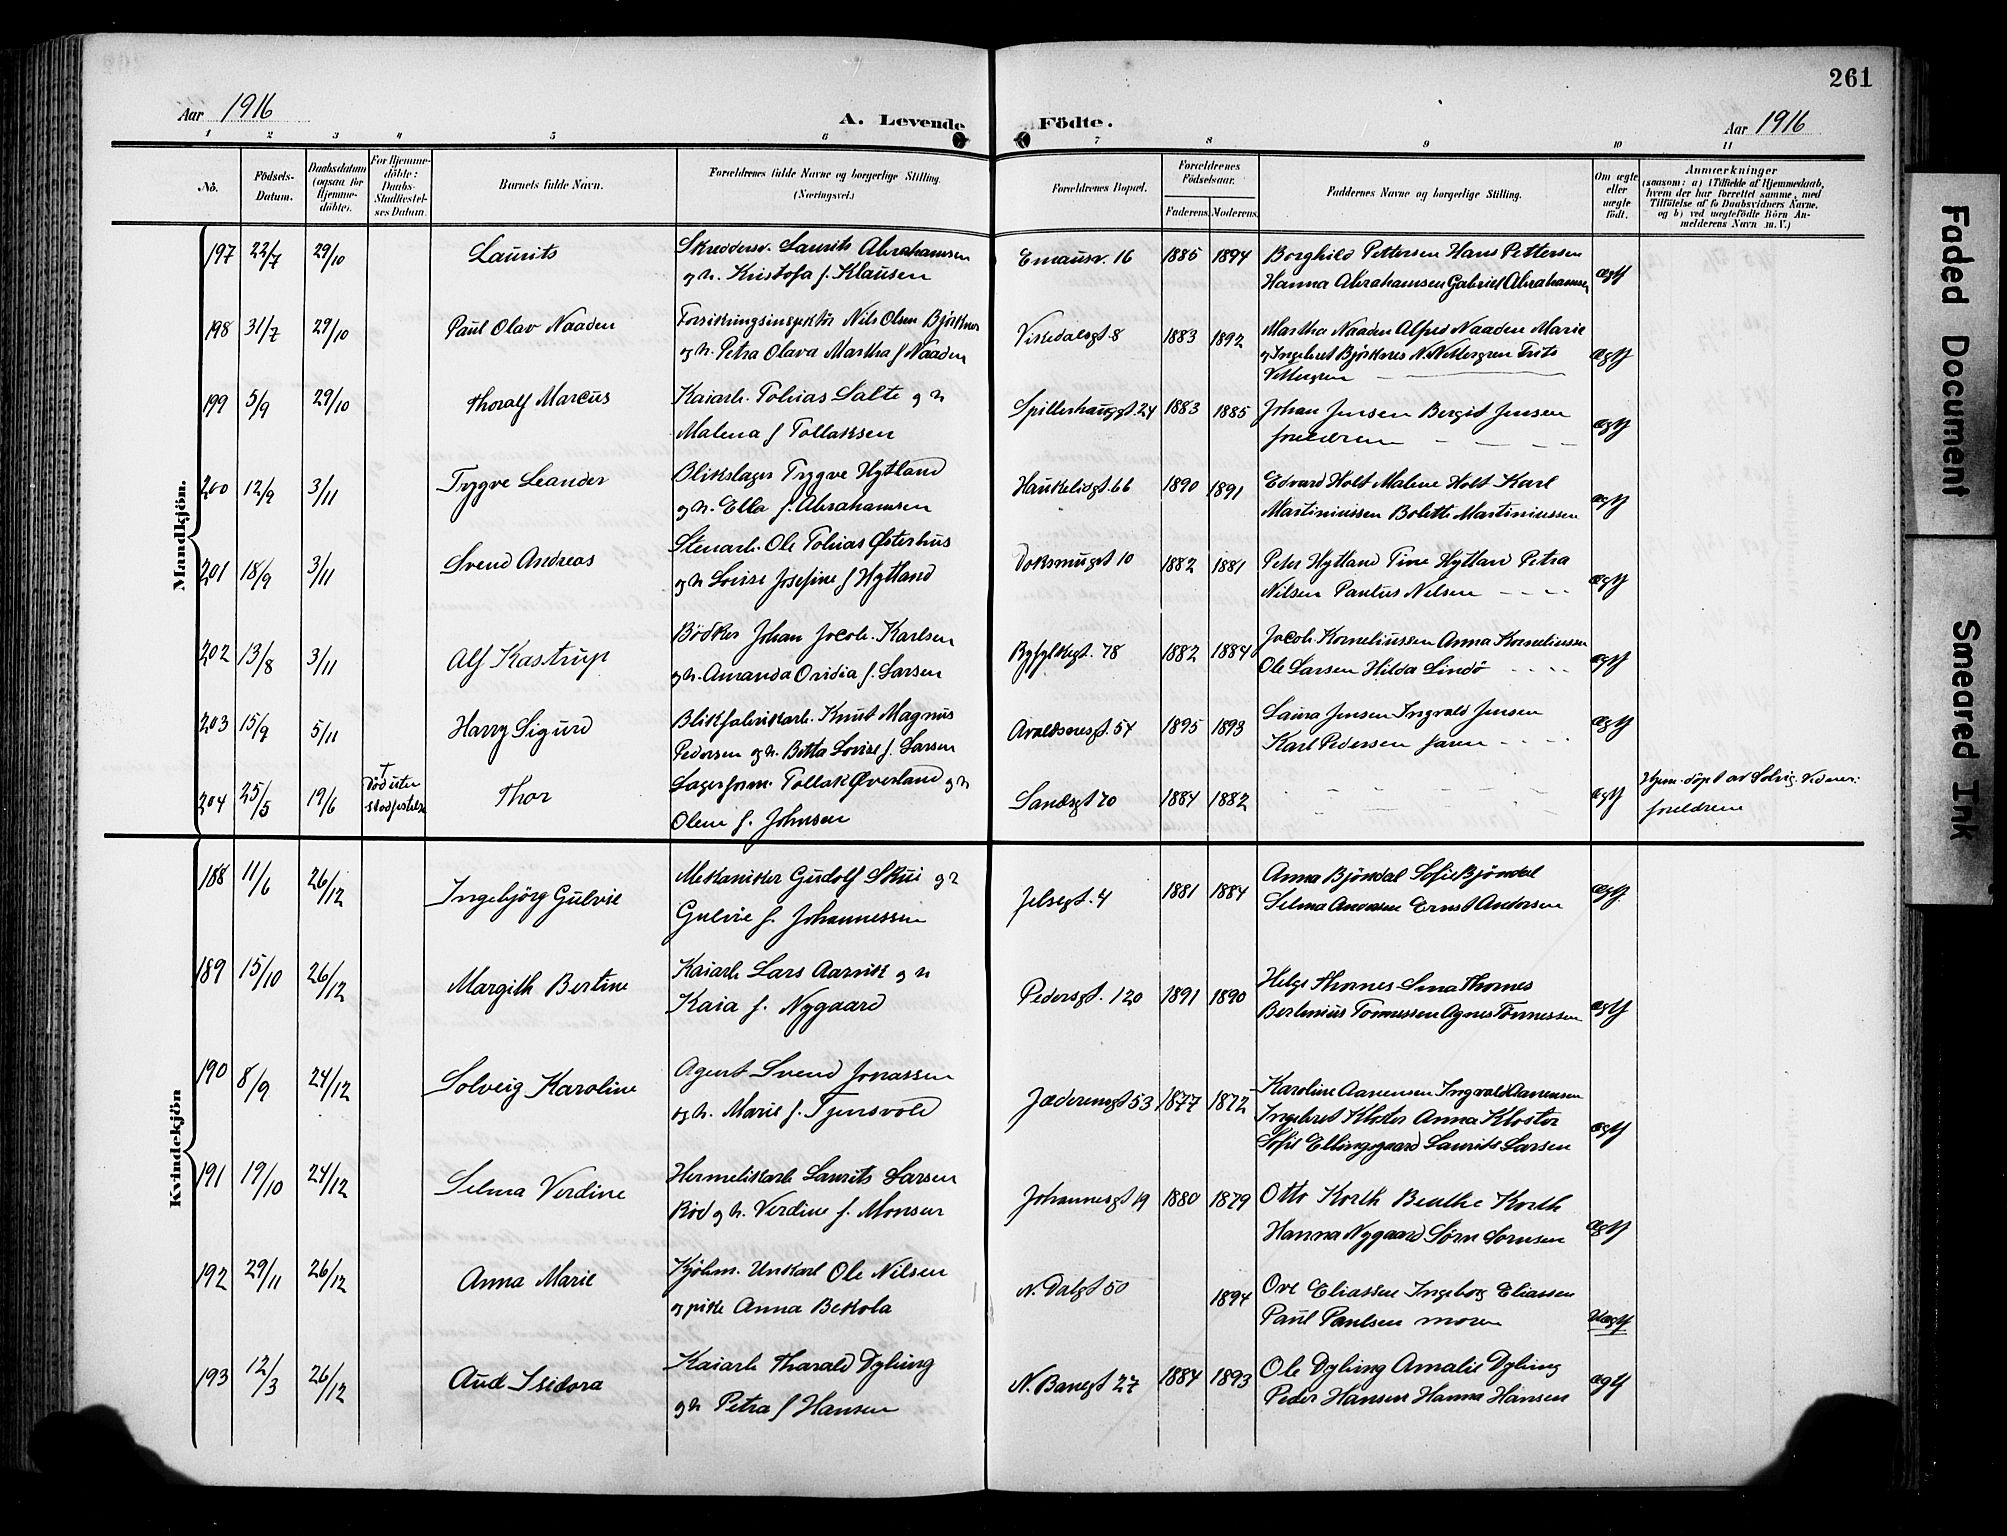 261
Aar 1916
A. Levende Födte.
Aar 1916
1 2 3 4 5 6 7 8 9 10 11
No.
Födsels-
Datum.
Daabsdatum
(ogsaa for
Hjemme-
döbte).
For Hjemme-
döbte:
Daabs-
Stadfæstel-
ses Datum.
Barnets fulde Navn.
Forældrenes fulde Navne og borgerlige Stilling.
(Næringsvei.)
Forældrenes Bopæl.
Forældrenes
Födselsaar.
Faderens. Moderens.
Faddernes Navne og borgerlige Stilling.
Om ægte
eller
uægte
födt.
Anmærkninger
(saasom: a) i Tilfælde af Hjemmedaab,
hvem der har forrettet samme, med
Tilföielse af to Daabsvidners Navne,
og b) ved uægtefödte Börn An-
melderens Navn m. V.)
Mandkjön.
197 22/7 29/10 Laurits Skreddersv. Laurits Abrahamsen
og h. Kristofa f. Klausen
Emausv. 16 1885 1894 Borghild Pettersen Hans Pettersen
Hanna Abrahamsen Gabriel Abrahamsen ægte
198 31/7 29/10 Paul Olav Naaden Forsikringsinspektör Nils Olsen Björknes
og h. Petra Olava Martha f Naaden
Viskedalsgt 8 1883 1892 Martha Naaden Alfred Naaden Marie
og Ingebret Björknes N. Vettergren Frits
Vettergren ægte
199 5/9 29/10 Thoralf Marcus Kaiarb. Tobias Salte og h
Malena f Tollaksen
Spilderhauggt. 24 1883 1885 Johan Jensen Bergit Jensen
foreldrene ægte
200 12/9 3/11 Trygve Leander Blikslager Trygve Hytland
og h. Ella f. Abrahamsen
Haukeligt. 66 1890 1891 Edvard Holt Malene Holt Karl
Martiniussen Bolette Martiniussen ægte
201 18/9 3/11 Svend Andreas Stenarb. Ole Tobias Østerhus
og h Lovise Josefine f Hytland
Voksmugt 10 1882 1881 Peter Hytland Tine Hytland Petra
Nilsen Paulus Nilsen ægte
202 13/8 3/11 Alf Kastrup Bödker Johan Jacob Karlsen
og h. Amanda Ovidia f. Larsen
Ryfylkegt. 78 1882 1884 Jacob Korneliussen Anna Korneliussen
Ole Larsen Hilda Lindö ægte
203 15/9 5/11 Harry Sigurd Blikfabrikarb. Knut Magnus
Pedersen og h. Betta Lovise f. Larsen
Avaldsnesgt. 54 1895 1893 Laura Jensen Ingvald Jensen
Karl Pedersen faren ægte
204 25/5 19/6 Död uten
stadfestelse Thor Lagerform. Tollak Øverland og h
Olene f. Johnsen
Sandsgt 70 1884 1882 ægte Hjem. döpt av Solvig. Vidner:
foreldrene
Kvindekjön
188 11/6 26/12 Ingebjörg Gulvie Mekaniker Gudolf Skui og h
Gulvie f. Johannessen
Jelsegt. 4 1881 1884 Anna Bjöndal Sofie Bjöndal
Selma Andersen Ernst Andersen ægte
189 15/10 26/12 Margith Bertine Kaiarb Lars Aarvik og h
Kaia f. Nygaard
Pedersgt. 120 1891 1890 Helge Thornes Sina Thornes
Bertinius Tönnessen Agnes Tönnessen ægte
190 8/9 24/12 Solveig Karoline Agent Svend Jonassen
og h. Marie f. Tjensvold
Jæderensgt 53 1877 1872 Karoline Aanensen Ingvald Aanensen
Ingebret Kloster Anna Kloster
Sofie Ellingsgaard Laurits Larsen ægte
191 19/10 24/12 Selma Verdine Hermetikarb Laurits Larsen
Röd og h. Verdine f. Monsen
Johannesgt 19 1880 1879 Otto Korth Benthe Korth
Hanna Nygaard Sörn Sörnsen ægte
192 29/11 26/12 Anna Marie Kjöbm. Unkarl Ole Nilsen
og pike Anna Bekola
N. Dalgt 50 1894 Ove Eliassen Ingeborg Eliassen
Paul Paulsen moren Uægte
193 12/3 26/12 Aud Isidora Kaiarb Tharald Dybing
og h Petra f Hansen
N. Banegt 27 1884 1893 Ole Dybing Amalie Dybing
Peder Hansen Hanna Hansen ægte
Faded Document
Smeared Ink